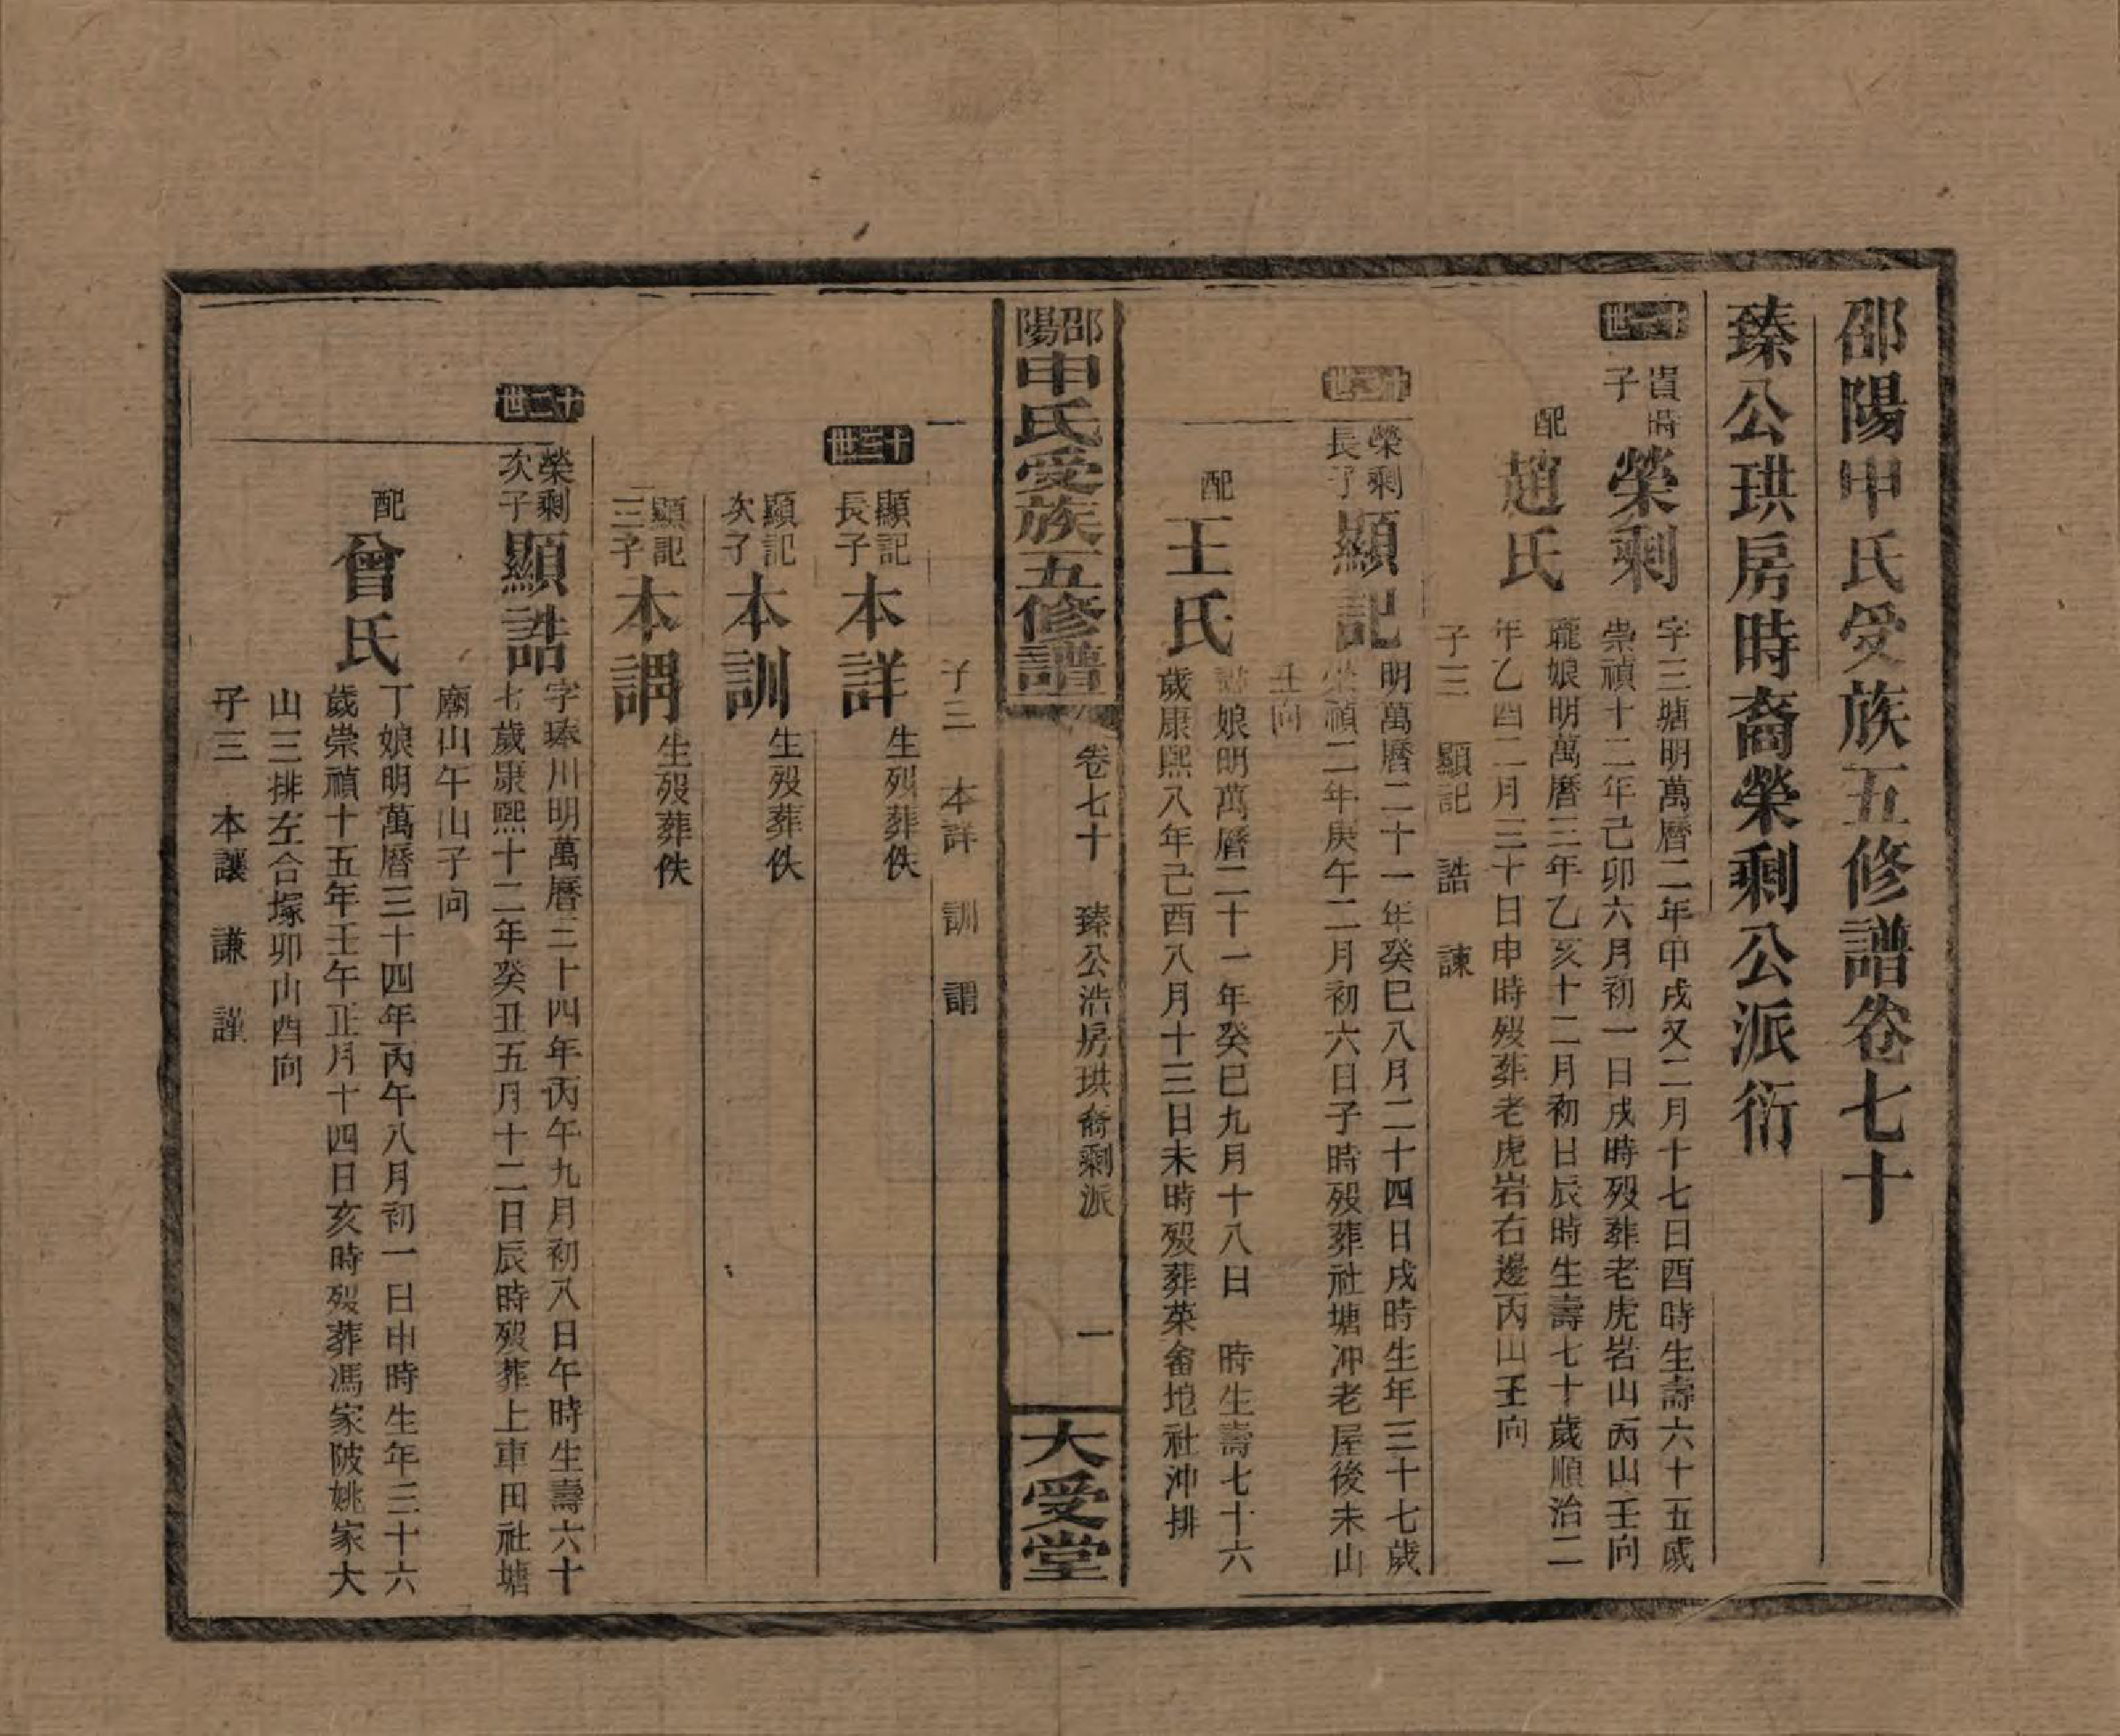 邵陽申氏受族五修譜卷七十
臻公珙房時裔榮剩公派衍
十一世
貴時子
榮剩
字三塘明萬曆二年甲戌又二月十七日酉時生壽六十五歲
崇禎十二年己卯六月初一日戌時歿葬老虎岩山丙山壬向
配
趙氏
娘明萬曆三年乙亥十二月初日辰時生壽七十歲順治二
年乙酉二月三十日申時歿葬老虎岩右邊丙山壬向
子三 顯記 誥 諫
十二世
榮剩長子
顯記
明萬曆二十一年癸巳八月二十四日戌時生年三十七歲
崇禎二年庚午二月初六日子時歿葬社塘冲老屋後未山
丑向
配
王氏
娘明萬曆二十一年癸巳九月十八日 時生壽七十六
歲康熙八年己酉八月十三日未時歿葬菜畬垉社冲排
邵陽申氏受族五修譜
卷七十 臻公浩房珙裔剩派
一
大受堂
子三 本詳 訓 謂
十三世
顯記長子
本詳
生歿葬佚
顯記次子
本訓
生歿葬佚
顯記三子
本謂
生歿葬佚
十二世
榮剩次子
顯誥
字琫川明萬曆三十四年丙午九月初八日午時生壽六十
七歲康熙十二年癸丑五月十二日辰時歿葬上車田社塘
廟山午山子向
配
曾氏
丁娘明萬曆三十四年丙午八月初一日申時生年三十六
歲崇禎十五年壬午正月十四日亥時歿葬馮家陂姚家大
山三排左合塚卯山酉向
子三 本讓 謙 謹